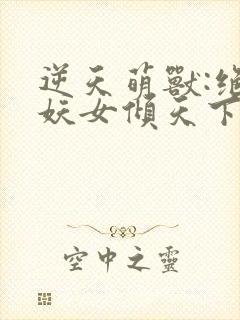 逆天萌獸:絕
妖女傾天下
空中之靈